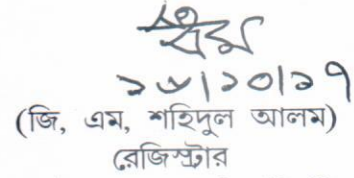 ১৮|১০|১৭
(জি, এম, শাহিদুল আলম)
রেজিস্ট্রার